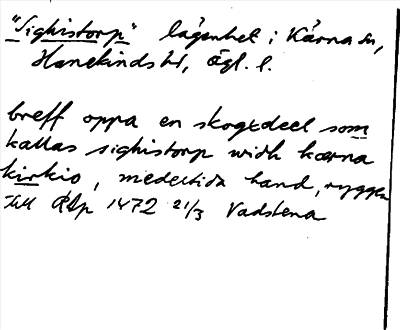 "Sighistorp" lägenhet i Kärna sn,
Hanekinds hd, Ögl. l.
breff oppa en skogxdeel som
kallas sighistorp widh kærna
kirkio, medeltida hand, ryggen
till RAp 1472 21/3 Vadstena